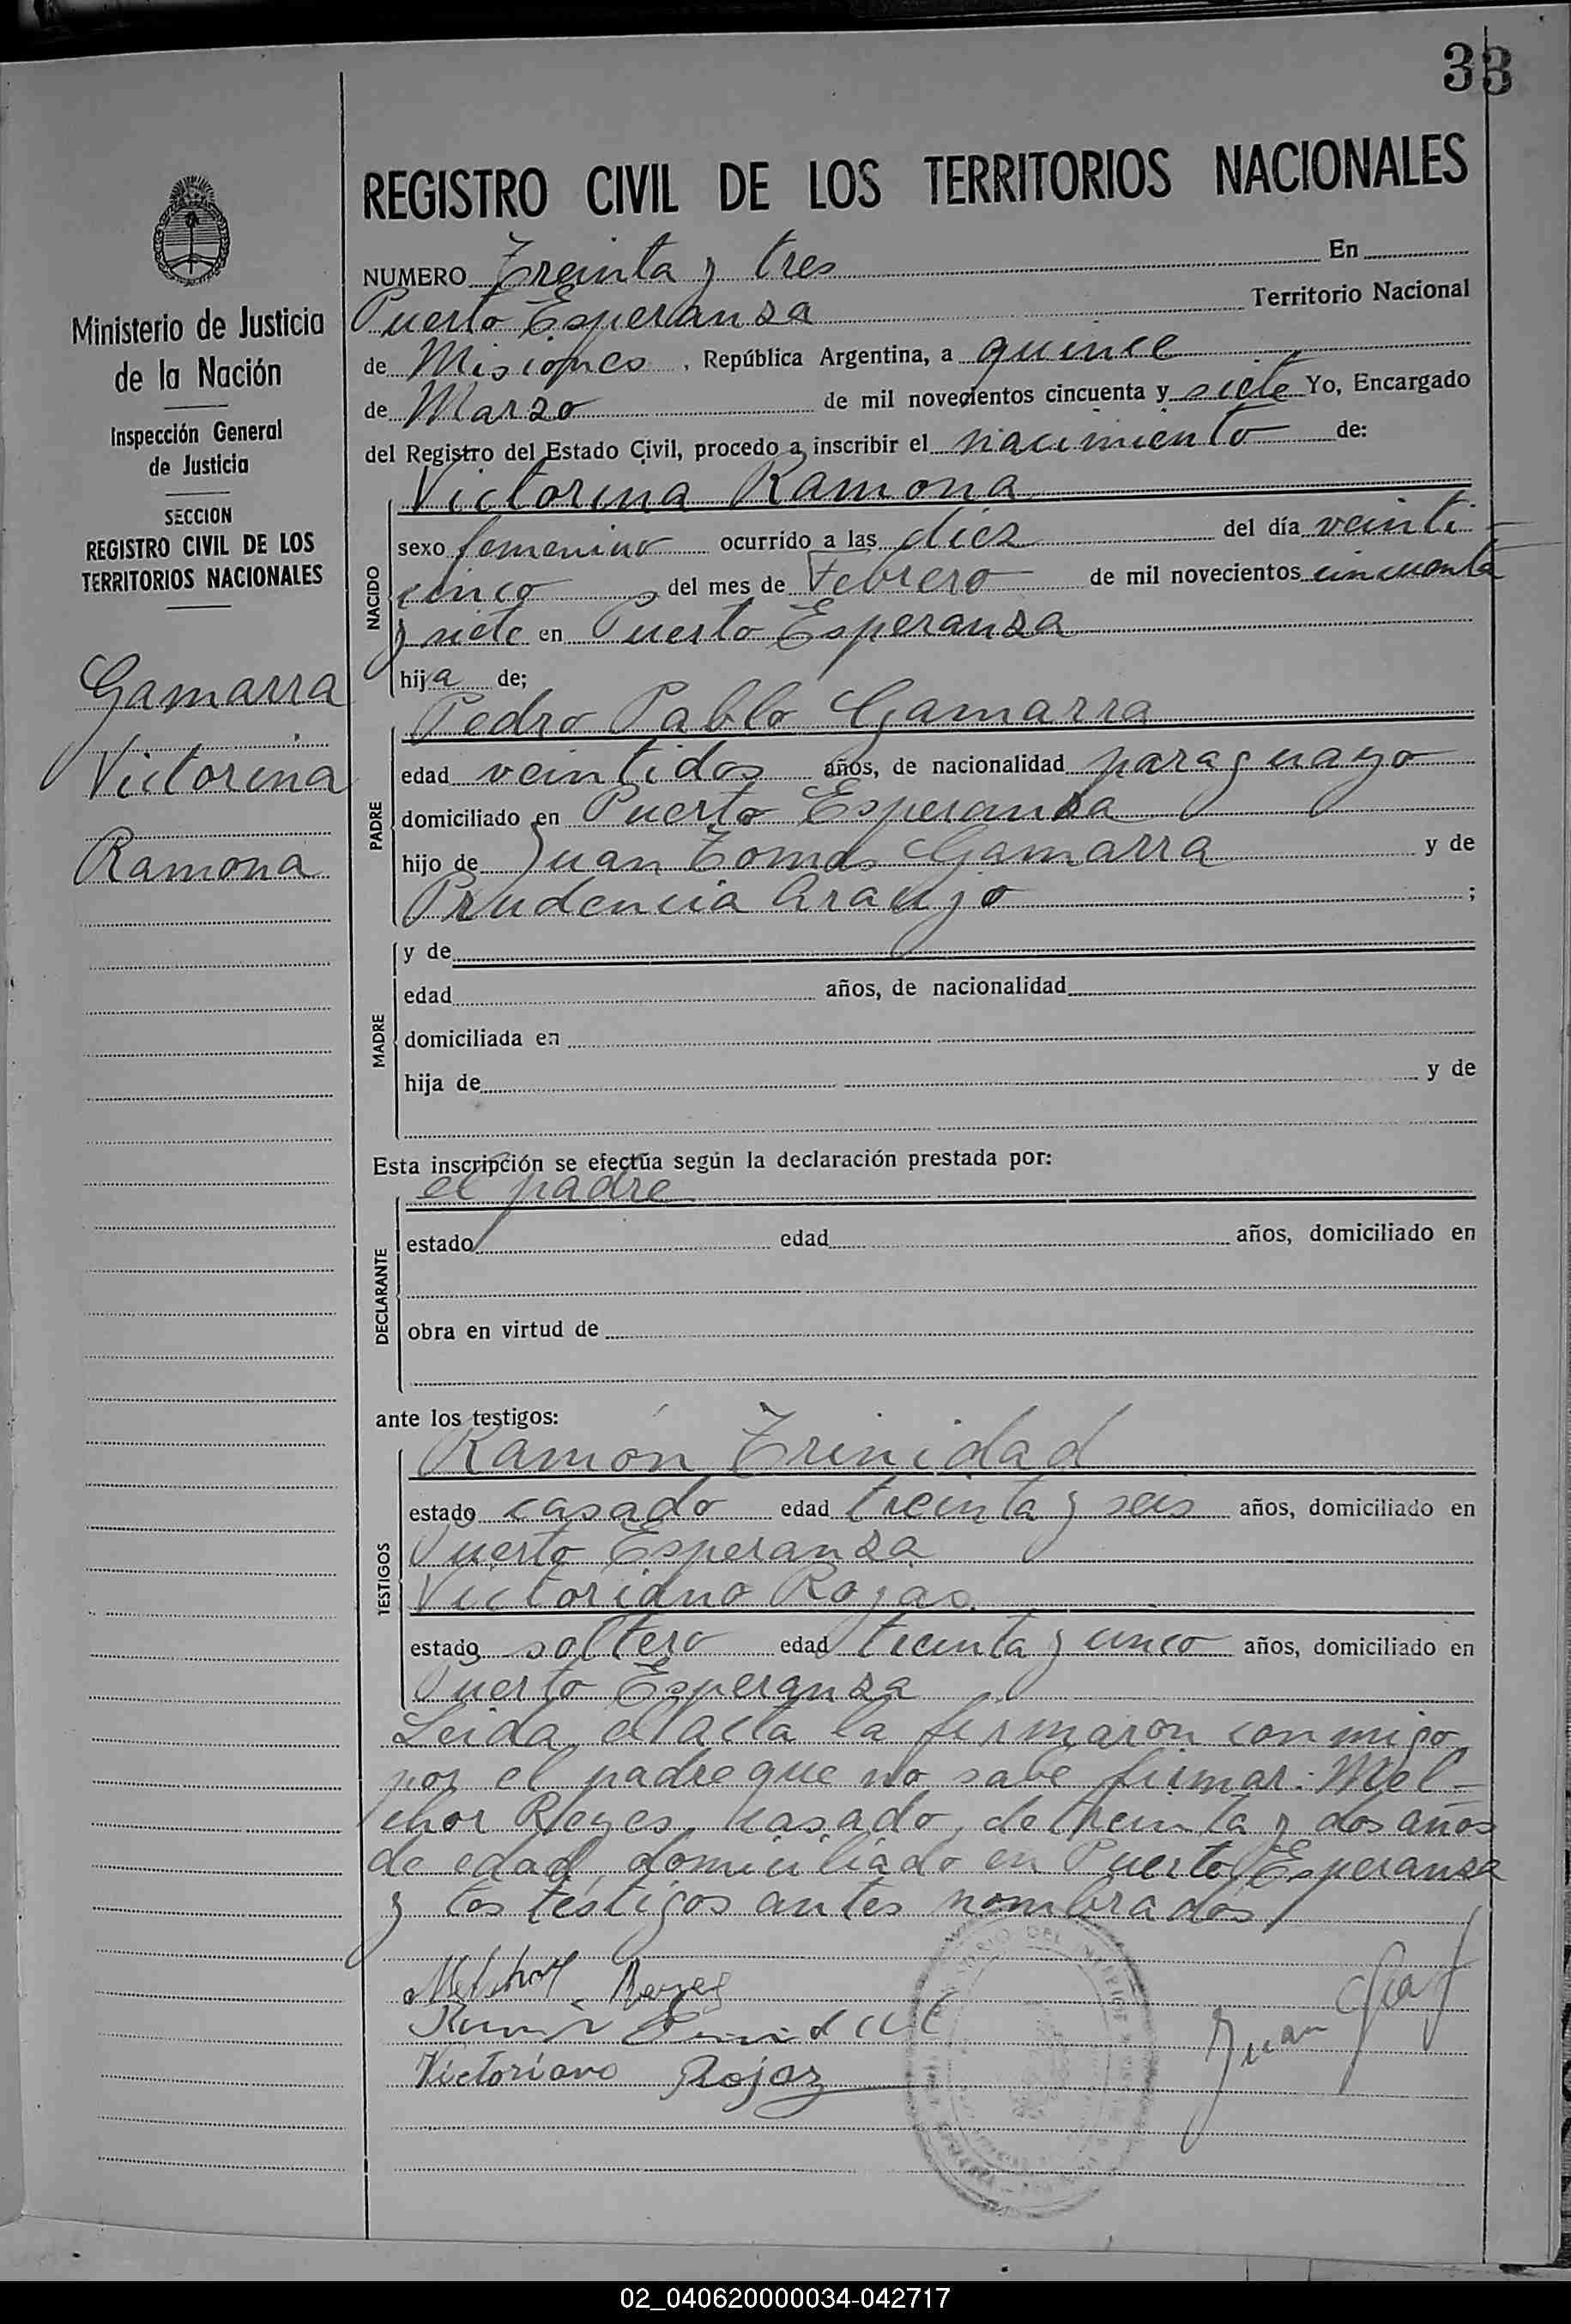 33
REGISTRO CIVIL DE LOS TERRITORIOS NACIONALES
NUMERO Treinta y tres En
Puerto Esperanza Territorio Nacional
de Misiones, República Argentina, a quince
de Marzo de mil novecientos cincuenta y siete Yo, Encargado
del Registro del Estado Civil, procedo a inscribir el nacimiento de:
Ministerio de Justicia
de la Nación
Inspección General
de Justicia
SECCION
REGISTRO CIVIL DE LOS
TERRITORIOS NACIONALES
Gamarra
Victorina
Ramona
NACIDO
Victorina Ramona
sexo femenino ocurrido a las diez del día veinti-
cinco del mes de Febrero de mil novecientos cincuenta
y siete en Puerto Esperanza
hija de;
PADRE
Pedro Pablo Gamarra
edad veintidos años, de nacionalidad paraguayo
domiciliado en Puerto Esperanza
hijo de Juan Tomas Gamarra y de
Prudencia Araujo ;
MADRE
y de
edad años, de nacionalidad
domiciliada en
hija de y de
Esta inscripción se efectúa según la declaración prestada por:
DECLARANTE
el padre
estado edad años, domiciliado en
obra en virtud de
ante los testigos:
TESTIGOS
Ramón Trinidad
estado casado edad treinta y seis años, domiciliado en
Puerto Esperanza
Victoriano Rojas
estado soltero edad treinta y cinco años, domiciliado en
Puerto Esperanza
Leida el acta la firmaron conmigo
por el padre que no sabe firmar: Mel-
chor Reyes, casado, de treinta y dos años
de edad, domiciliado en Puerto Esperanza
y los testigos antes nombrados
Melchor Reyes
Ramón Trinidad
Victoriano Rojaz
Juan
02_040620000034-042717